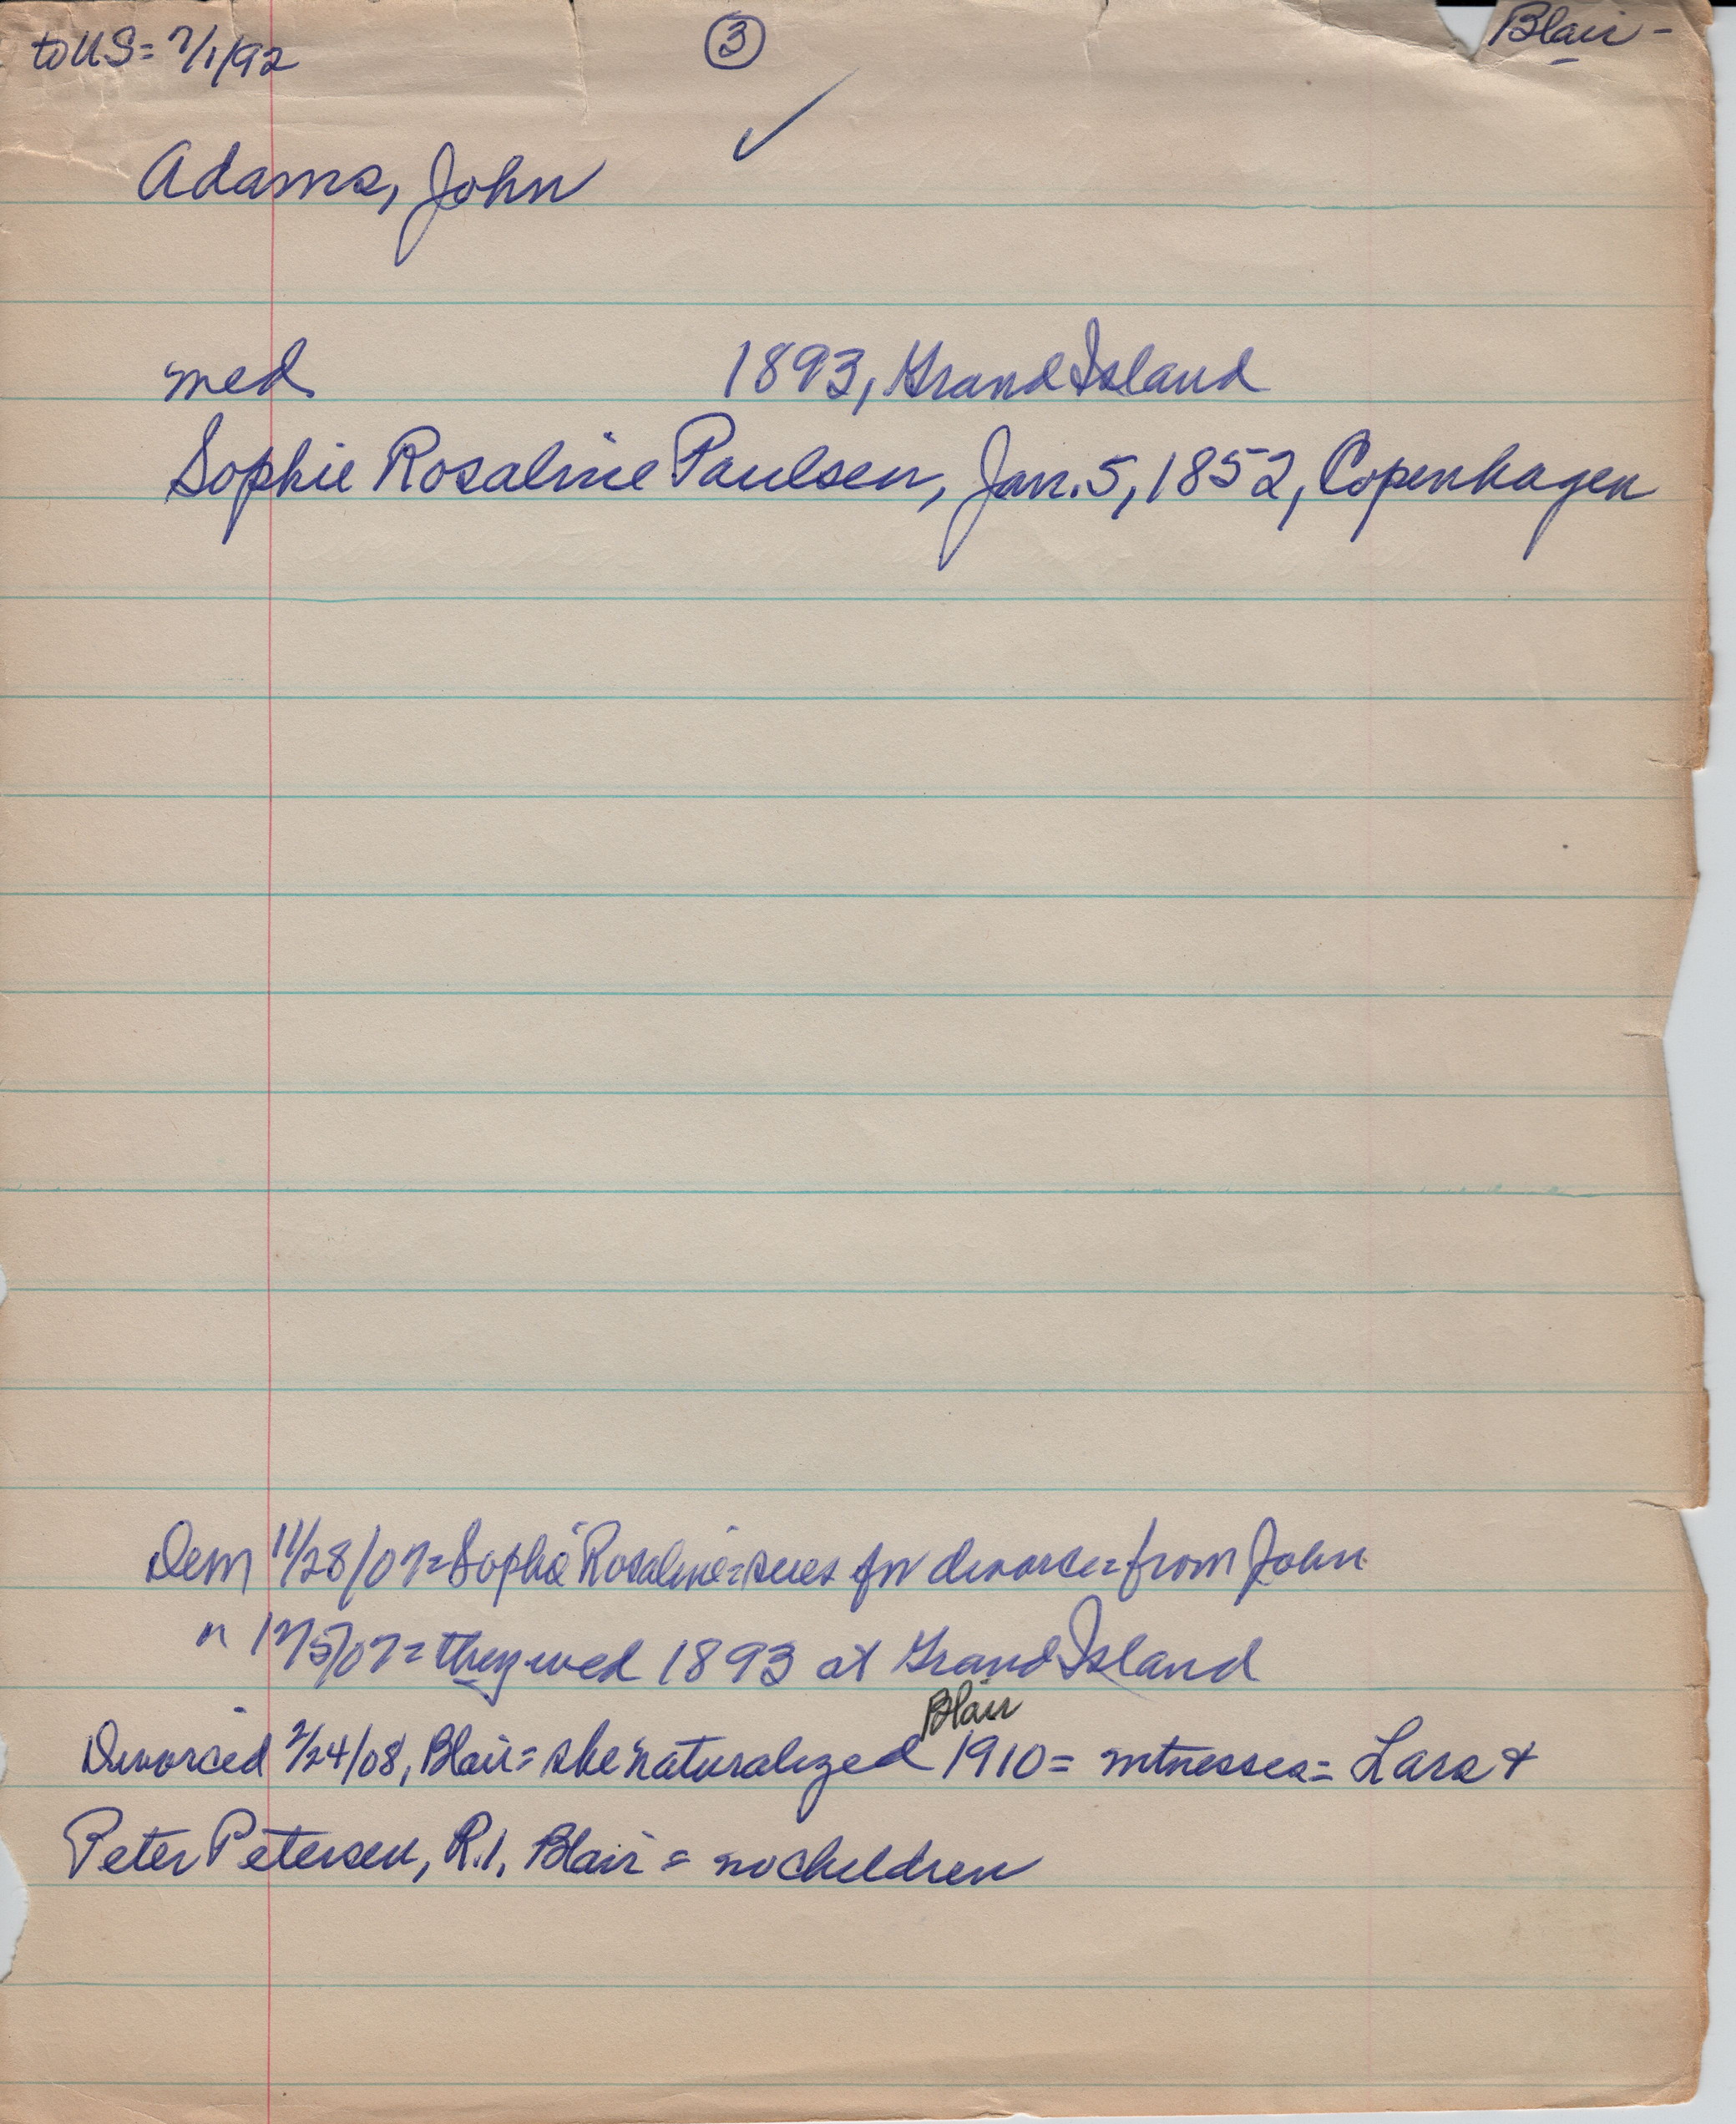 to US = 7/1/92 ③ Blair -
✓
Adams, John
med 1893, Grand Island
Sophie Rosaline Paulsen, Jan. 5, 1852, Copenhagen
Dem 11/28/07 = Sophie Rosaline = sues for divorce = from John
" 12/5/07 = they wed 1893 at Grand Island
Blair
Divorced 2/24/08, Blair = she naturalized 1910 = witnesses = Lars &
Peter Petersen, R.1, Blair = no children